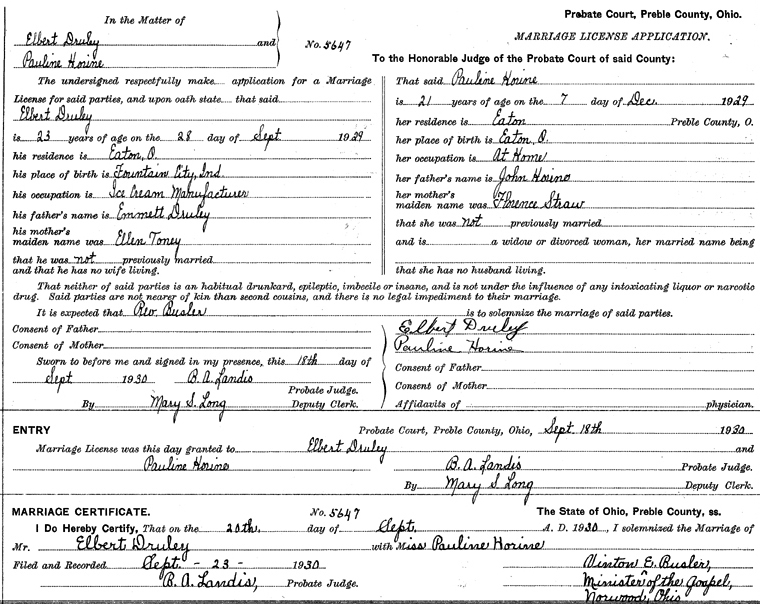 Probate Court, Preble County, Ohio.
MARRIAGE LICENSE APPLICATION.
In the Matter of
Elbert Druley and
Pauline Horine
No. 5647
To the Honorable Judge of the Probate Court of said County:
The undersigned respectfully make application for a Marriage
License for said parties, and upon oath state that said
Elbert Druley
is 23 years of age on the 28 day of Sept 1929
his residence is Eaton, O.
his place of birth is Fountain City, Ind.
his occupation is Ice Cream Manufacturer
his father's name is Emmett Druley
his mother's
maiden name was Ellen Toney
that he was not previously married
and that he has no wife living.
That said Pauline Horine
is 21 years of age on the 7 day of Dec. 1929
her residence is Eaton Preble County, O.
her place of birth is Eaton, O.
her occupation is At Home
her father's name is John Horine
her mother's
maiden name was Florence Straw
that she was not previously married
and is a widow or divorced woman, her married name being
that she has no husband living.
That neither of said parties is an habitual drunkard, epileptic, imbecile or insane, and is not under the influence of any intoxicating liquor or narcotic
drug. Said parties are not nearer of kin than second cousins, and there is no legal impediment to their marriage.
It is expected that Rev. Busler is to solemnize the marriage of said parties.
Consent of Father
Consent of Mother
Sworn to before me and signed in my presence, this 18th day of
Sept 1930 B. A. Landis
Probate Judge.
By Mary S. Long Deputy Clerk.
Elbert Druley
Pauline Horine
Consent of Father
Consent of Mother
Affidavits of physician.
ENTRY
Probate Court, Preble County, Ohio, Sept. 18th 1930
Marriage License was this day granted to Elbert Druley and
Pauline Horine
B. A. Landis Probate Judge.
By Mary S. Long Deputy Clerk.
MARRIAGE CERTIFICATE. No. 5647 The State of Ohio, Preble County, ss.
I Do Hereby Certify, That on the 20th. day of Sept. A. D. 1930, I solemnized the Marriage of
Mr. Elbert Druley with Miss Pauline Horine
Filed and Recorded Sept. - 23 - 1930
B. A. Landis, Probate Judge.
Vinton E. Busler,
Minister of the Gospel,
Norwood, Ohio